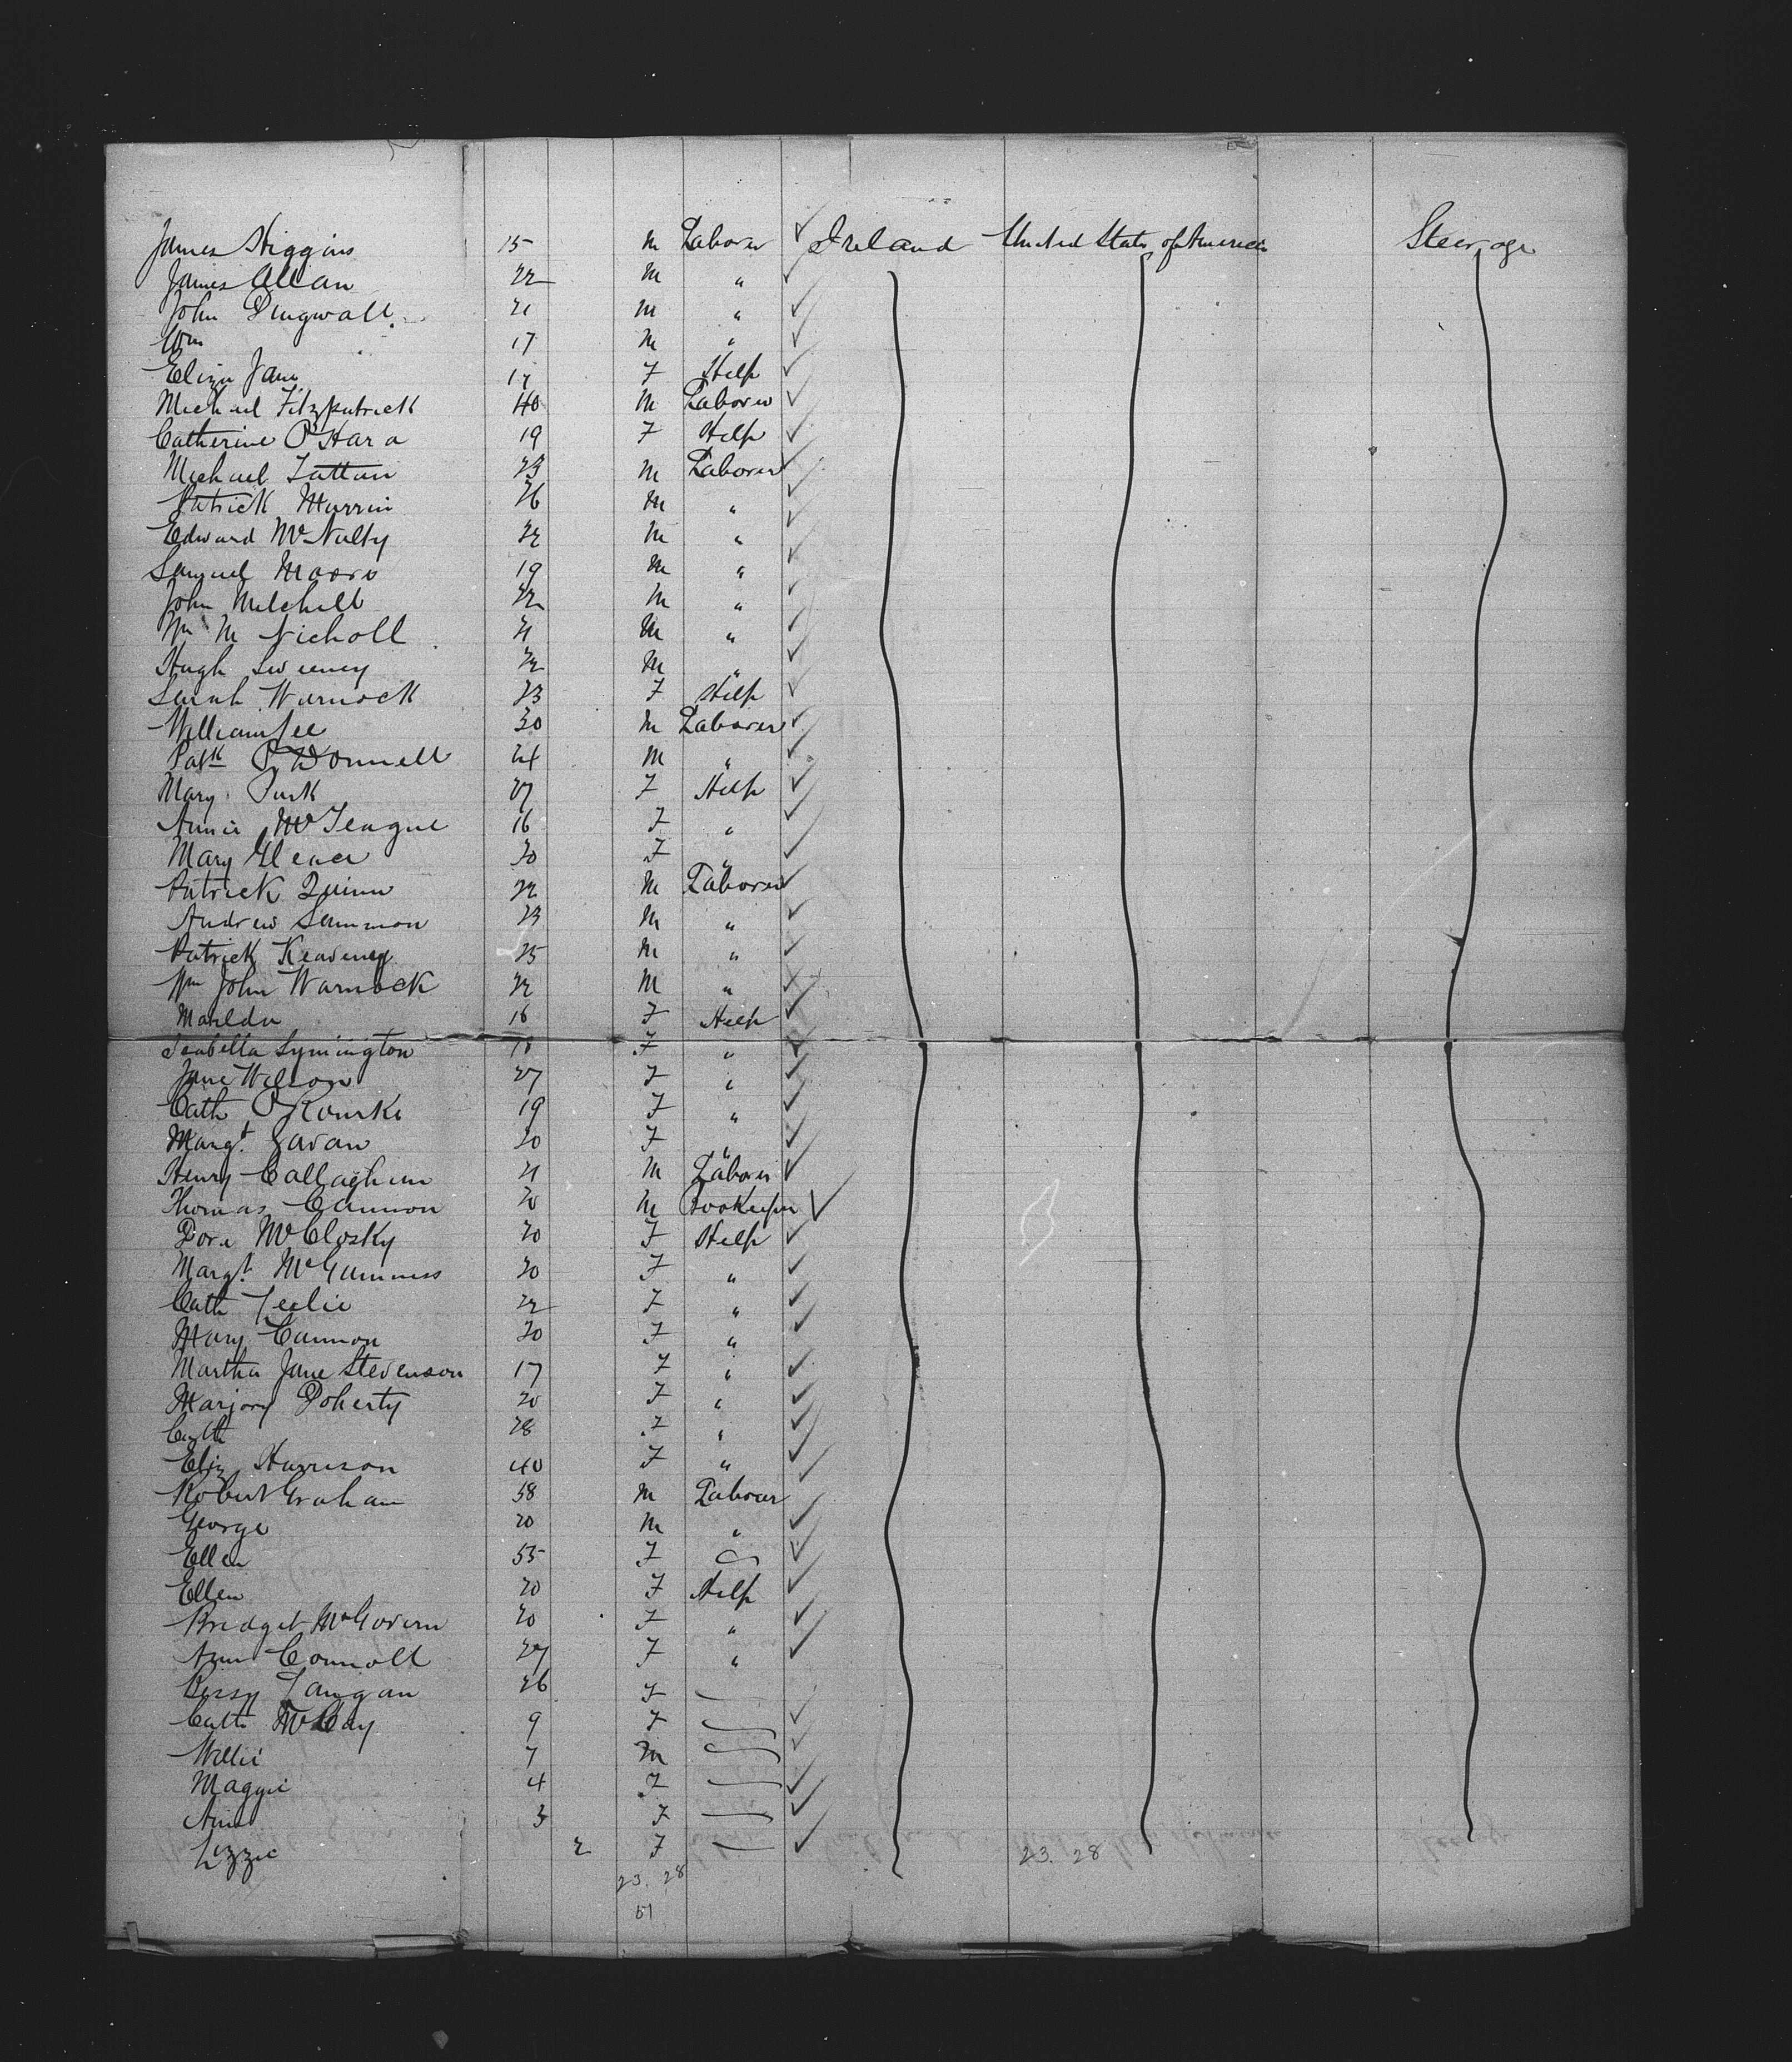 James Higgins 15 M Laborer ✓ Ireland United States of America Steerage
James Allan 22 M " ✓
John Dingwall 21 M " ✓
Wm 17 M " ✓
Eliza Jane 17 F Help ✓
Michael Fitzpatrick 40 M Laborer ✓
Catherine O'Hara 19 F Help ✓
Michael Tattan 23 M Laborer ✓
Patrick Murrin 26 M " ✓
Edward McNulty 22 M " ✓
Samuel Moore 19 M " ✓
John Mitchell 22 M " ✓
Wm McNicholl 21 M " ✓
Hugh Sweeney 22 M " ✓
Sarah Warnock 23 F Help ✓
William Lee 30 M Laborer ✓
Patk O'Donnell 24 M " ✓
Mary 27 F Help ✓
Annie McTeague 16 F " ✓
Mary 20 F " ✓
Patrick Quinn 22 M Laborer ✓
Andrew Scammon 23 M " ✓
Patrick Keaveney 25 M " ✓
Wm John Warnock 22 M " ✓
Matilda 16 F Help ✓
Isabella Symington 18 F " ✓
Jane Wilson 27 F " ✓
Cath O'Rourke 19 F " ✓
Margt Gavan 20 F " ✓
Henry Callaghan 21 M Laborer ✓
Thomas Cannon 20 M Bookeeper ✓
Dora McClosky 20 F Help ✓
Margt McGuinness 20 F " ✓
Cath Leslie 22 F " ✓
Mary Cannon 20 F " ✓
Martha Jane Stevenson 17 F " ✓
Marjory Doherty 20 F " ✓
Cath 28 F " ✓
Eliz Harrison 40 F " ✓
Robert Graham 58 M Laborer ✓
George 20 M " ✓
Ellen 55 F ✓
Ellen 20 F Help ✓
Bridget McGovern 20 F " ✓
Ann Connoll 27 F " ✓
Bessy Langan 26 F ✓
Cath McCay 9 F ✓
Willie 7 M ✓
Maggie 4 F ✓
Ann 3 F ✓
Lizzie 2 F ✓ 23. 28
23. 28
51